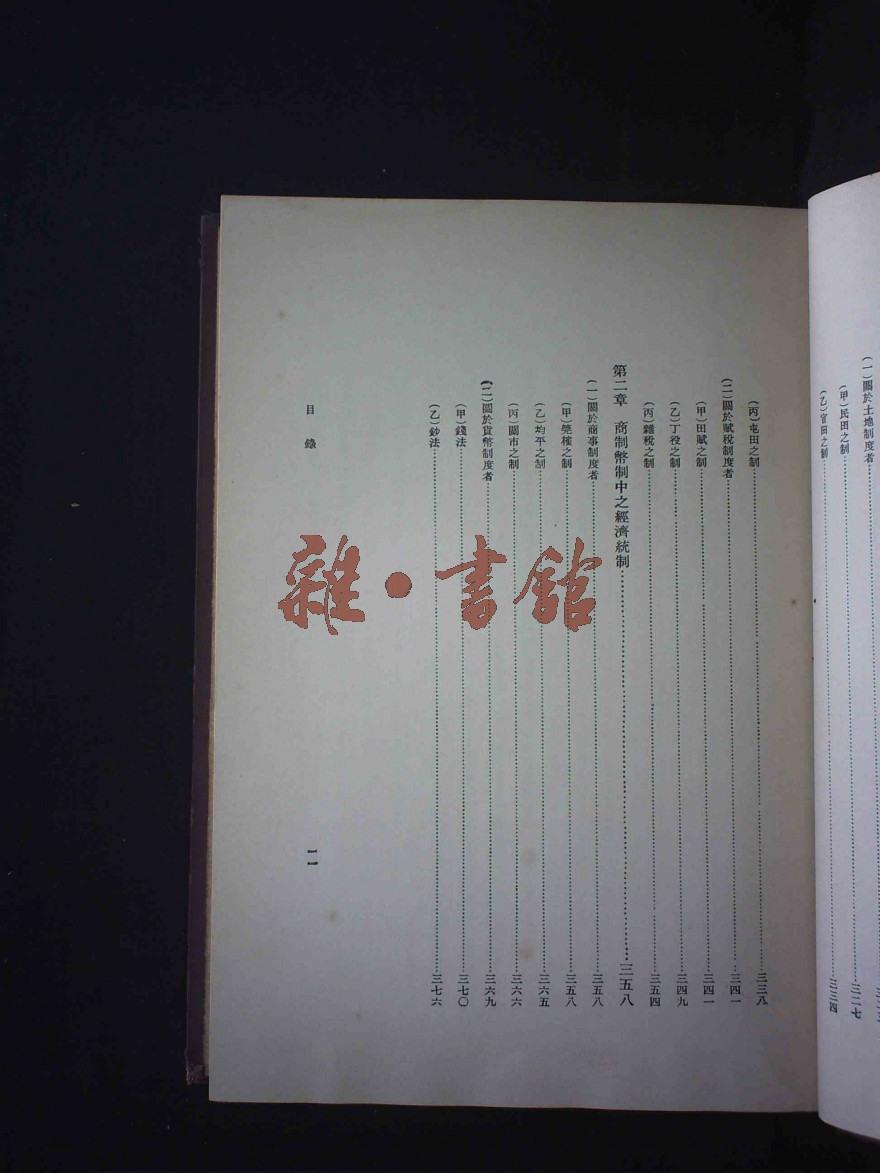 (一)關於土地制度者
(甲)民田之制……三二七
(乙)官田之制……三三四
(丙)屯田之制……三三八
(二)關於賦稅制度者……三四一
(甲)田賦之制……三四一
(乙)丁役之制……三四九
(丙)雜稅之制……三五四
第二章 商制幣制中之經濟統制……三五八
(一)關於商事制度者……三五八
(甲)筦榷之制……三五八
(乙)均平之制……三六五
(丙)關市之制……三六六
(二)關於貨幣制度者……三六九
(甲)錢法……三七〇
(乙)鈔法……三七六
目錄
一一
雜·書館